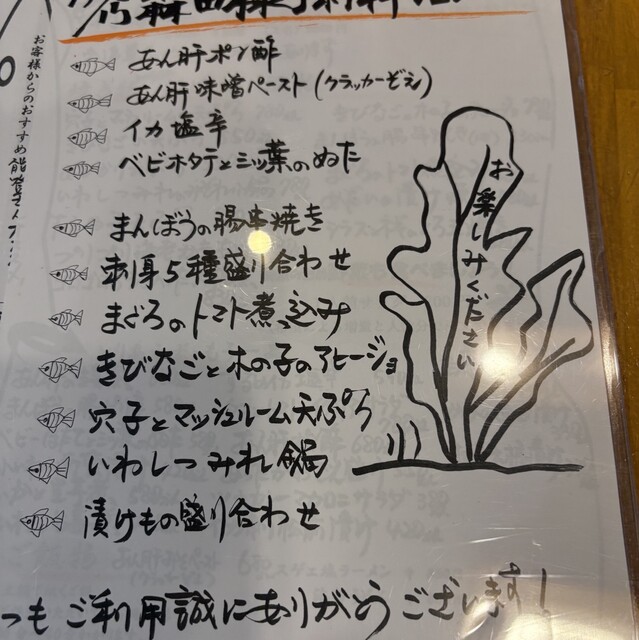 あん肝ポン酢
あん肝味噌ペースト(クラッカーぞえ)
イカ塩辛
ベビホタテと三ッ葉のぬた
まんぼうの腸串焼き
刺身5種盛り合わせ
まぐろのトマト煮っ込み
きびなごと木の子のアヒージョ
穴子とマッシュルーム天ぷら
いわしつみれ鍋
漬けもの盛り合わせ
つもご利用誠にありがとうございます!
お楽しみください
お客様からのおすすめ能登さん